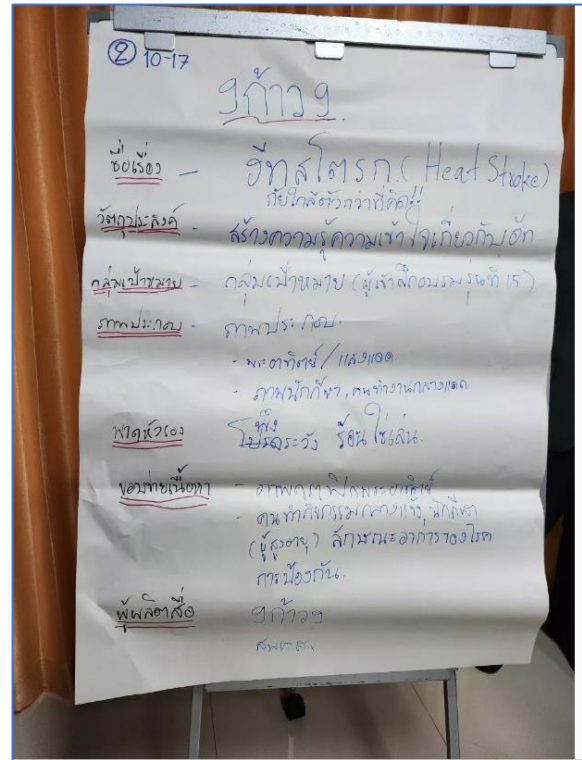 ② 10-17
ๆก้าวๆ
ชื่อเรื่อง - ฮีทสโตรก (Heat Stroke)
ภัยใกล้ตัวกว่าที่คิด!!
วัตถุประสงค์ - สร้างความรู้ความเข้าใจเกี่ยวกับฮีท
กลุ่มเป้าหมาย - กลุ่มเป้าหมาย (ผู้เข้าฝึกอบรมรุ่นที่ 15)
ภาพประกอบ - ภาพประกอบ.
- พระอาทิตย์ / แสงแดด
- ภาพนักกีฬา, คนทำงานกลางแดด
พาดหัวรอง ระวัง ร้อนใช่เล่น.
ขอบข่ายเนื้อหา - ภาพกราฟิกพระอาทิตย์
- คนทำกิจกรรมกลางแจ้ง, นักกีฬา
(ผู้สูงอายุ) ลักษณะอาการของโรค
การป้องกัน.
ผู้ผลิตสื่อ ๆก้าวๆ